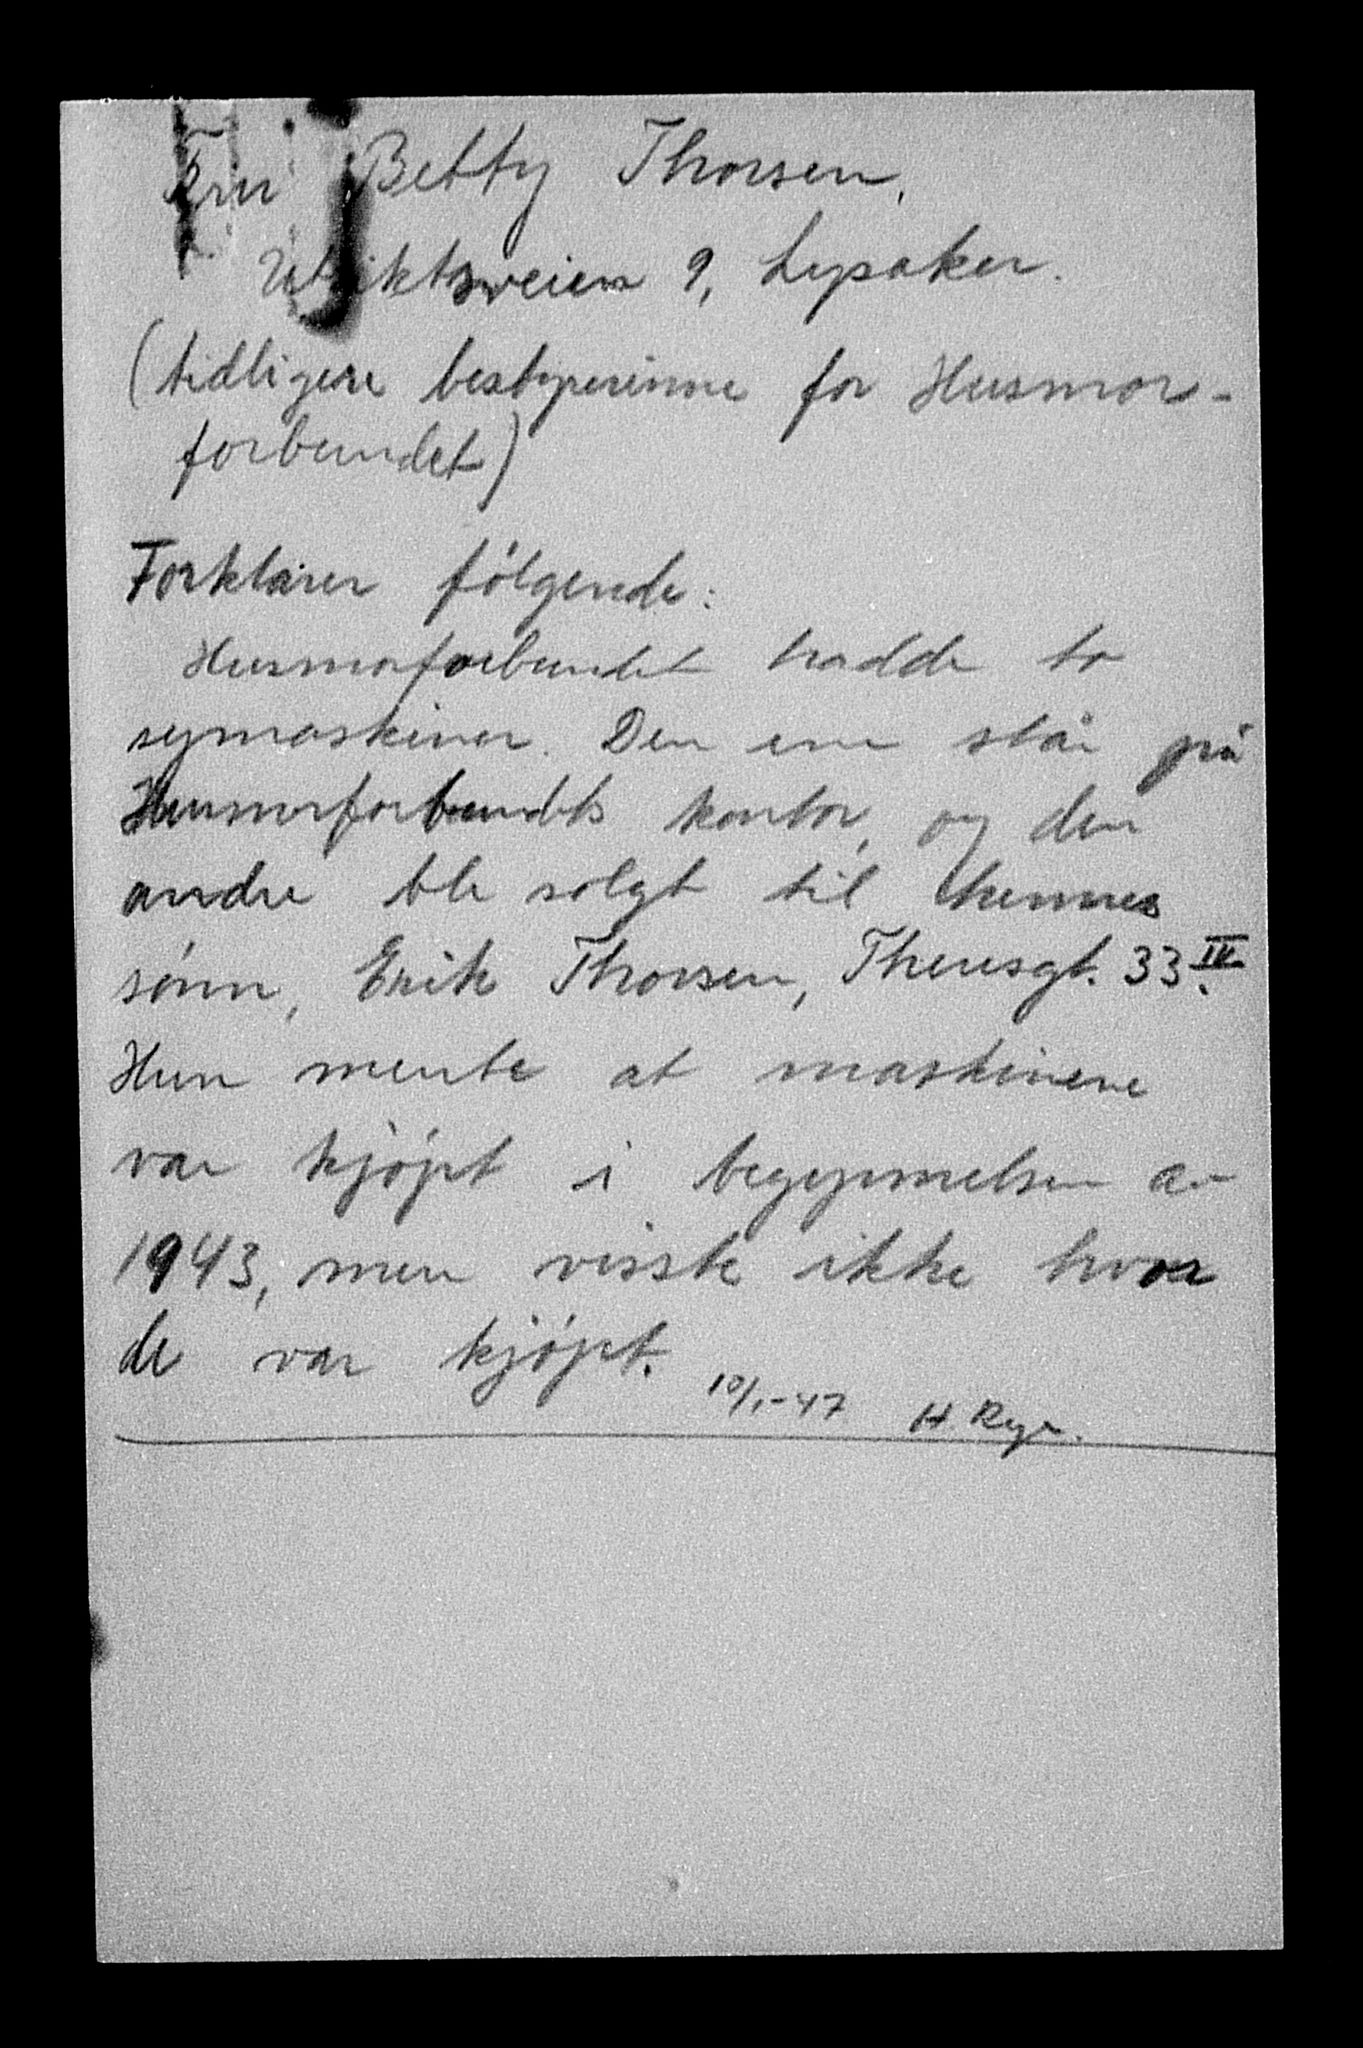 Fru Betty Thorsen,
Utsiktsveien 9, Lysaker.
(tidligere bestyrerinne for Husmor-
forbundet)
Forklarer følgende:
Husmorforbundet hadde to
symaskiner. Den ene står på
Husmorforbundets kontor, og den
andre ble solgt til hennes
sønn, Erik Thorsen, Theresgt. 33 IV.
Hun mente at maskinene
var kjøpt i begynnelsen av
1943, men visste ikke hvor
de var kjøpt.
10/1-47 H.